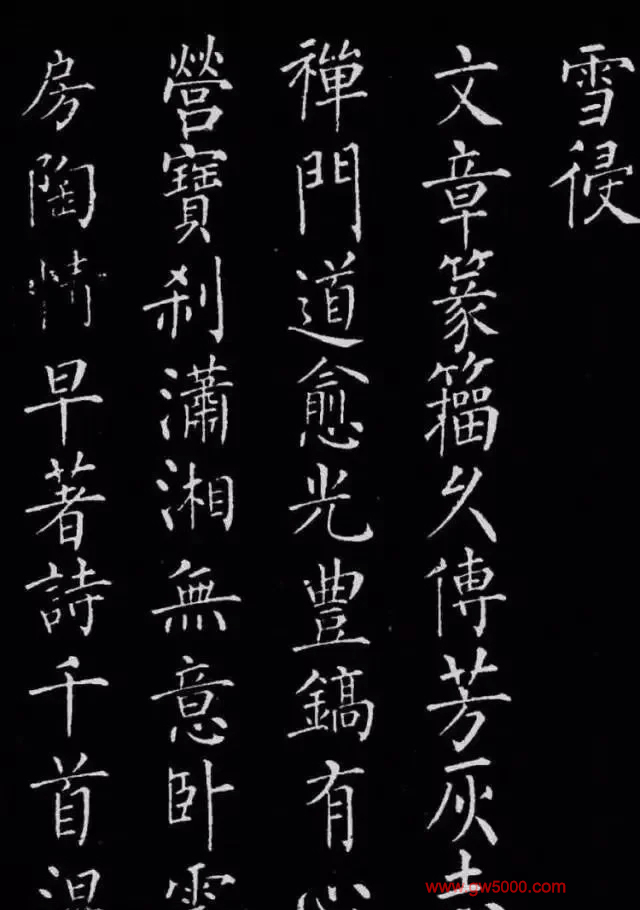 雪侵
文章篆籀久傳芳灰
禪門道愈光豐鎬有心
營寶剎瀟湘無意臥雲
房陶情早著詩千首
www.gw5000.com